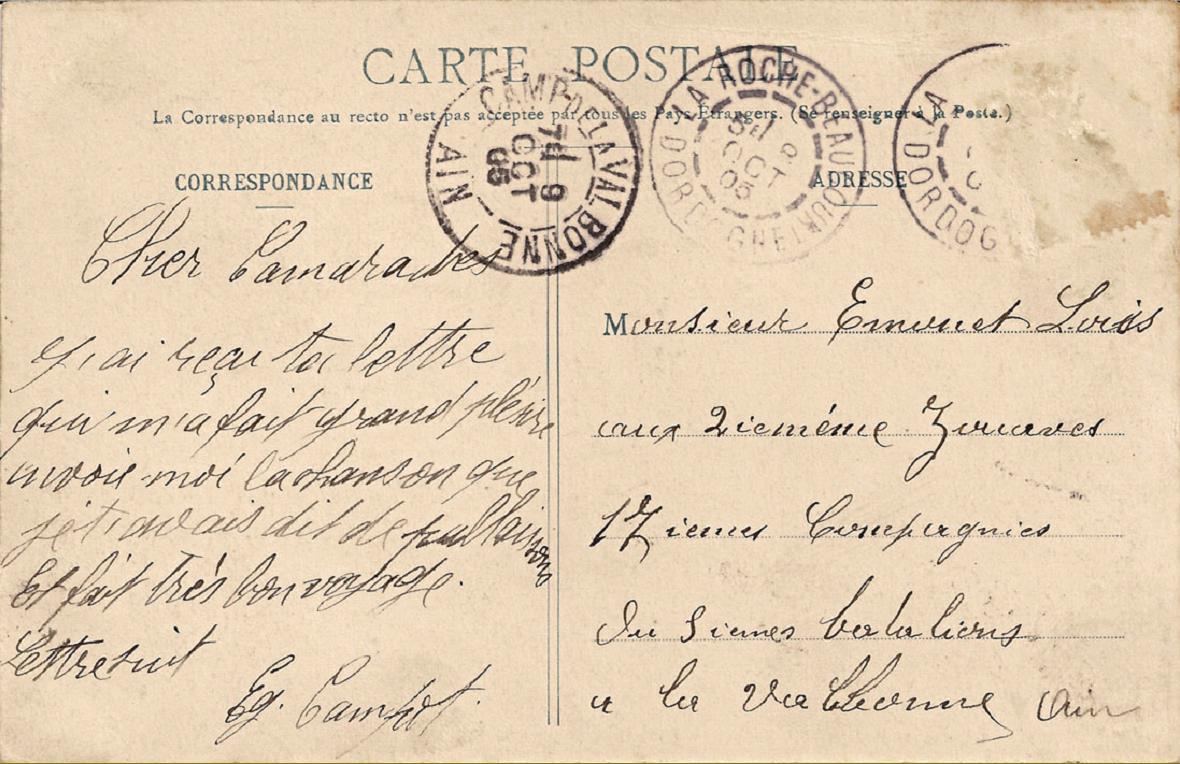 CARTE POSTALE
La Correspondance au recto n'est pas acceptée par tous les Pays Étrangers. (Se renseigner à la Poste.)
CORRESPONDANCE
ADRESSE
CAMP-DE LA VALBONNE
AIN
7E 9
OCT
05
LA ROCHE-BEAUCOURT
DORDOGNE
5E
OCT
05
LA
DORDOG
Cher Camarades
J'ai reçu ta lettre
qui m'a fait grand plésire
envoie moi la chanson que
je t'avais dit de
Et fait trés bon voyage.
Lettre suit
Eg.
Monsieur Emonet Loiis
aux 2ieméme Zouaves
17iemes Compagnies
du 5iemes batalions
a la Valbonne Ain